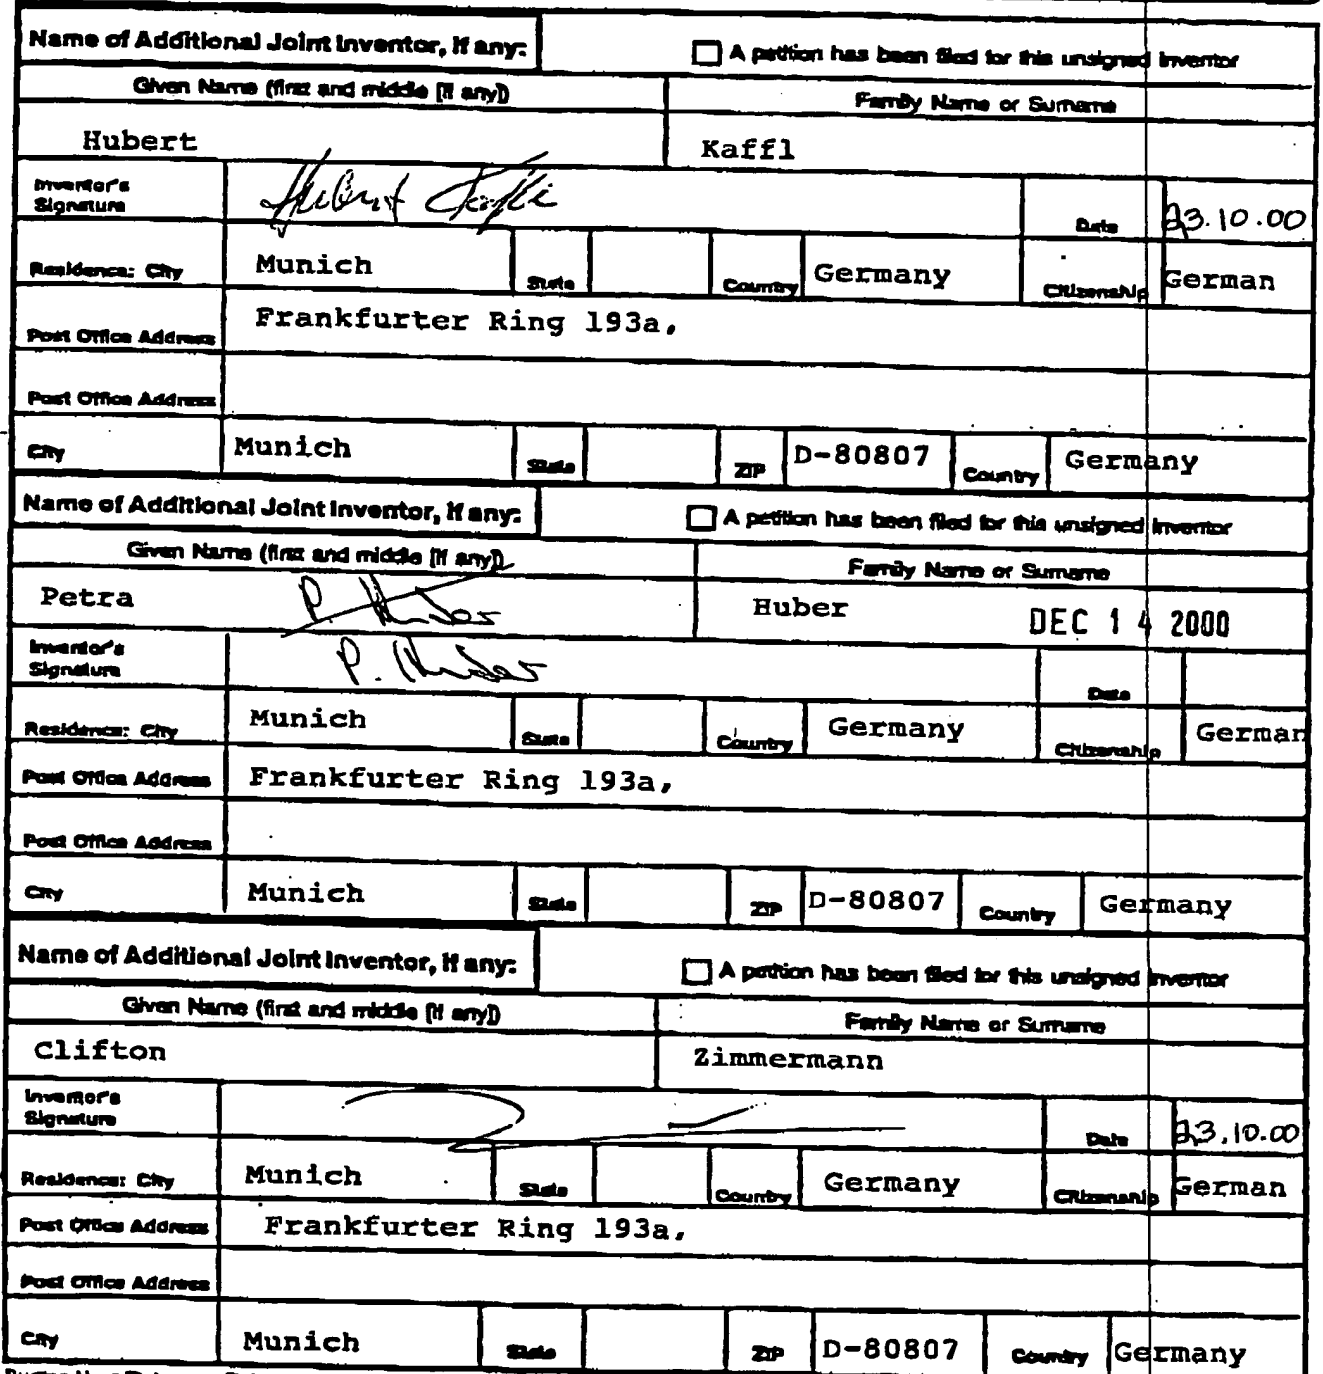 Name of Additional Joint Inventor, if any: A petition has been filed for this unsigned inventor
Given Name (first and middle [if any]) Family Name or Surname
Hubert Kaffl
Inventor's Signature Hubert Kaffl Date 23.10.00
Residence: City Munich State Country Germany Citizenship German
Post Office Address Frankfurter Ring 193a,
Post Office Address
City Munich State ZIP D-80807 Country Germany
Name of Additional Joint Inventor, if any: A petition has been filed for this unsigned inventor
Given Name (first and middle [if any]) Family Name or Surname
Petra P. Huber Huber DEC 14 2000
Inventor's Signature P. Huber Date
Residence: City Munich State Country Germany Citizenship German
Post Office Address Frankfurter Ring 193a,
Post Office Address
City Munich State ZIP D-80807 Country Germany
Name of Additional Joint Inventor, if any: A petition has been filed for this unsigned inventor
Given Name (first and middle [if any]) Family Name or Surname
Clifton Zimmermann
Inventor's Signature Date 23.10.00
Residence: City Munich State Country Germany Citizenship German
Post Office Address Frankfurter Ring 193a,
Post Office Address
City Munich State ZIP D-80807 Country Germany